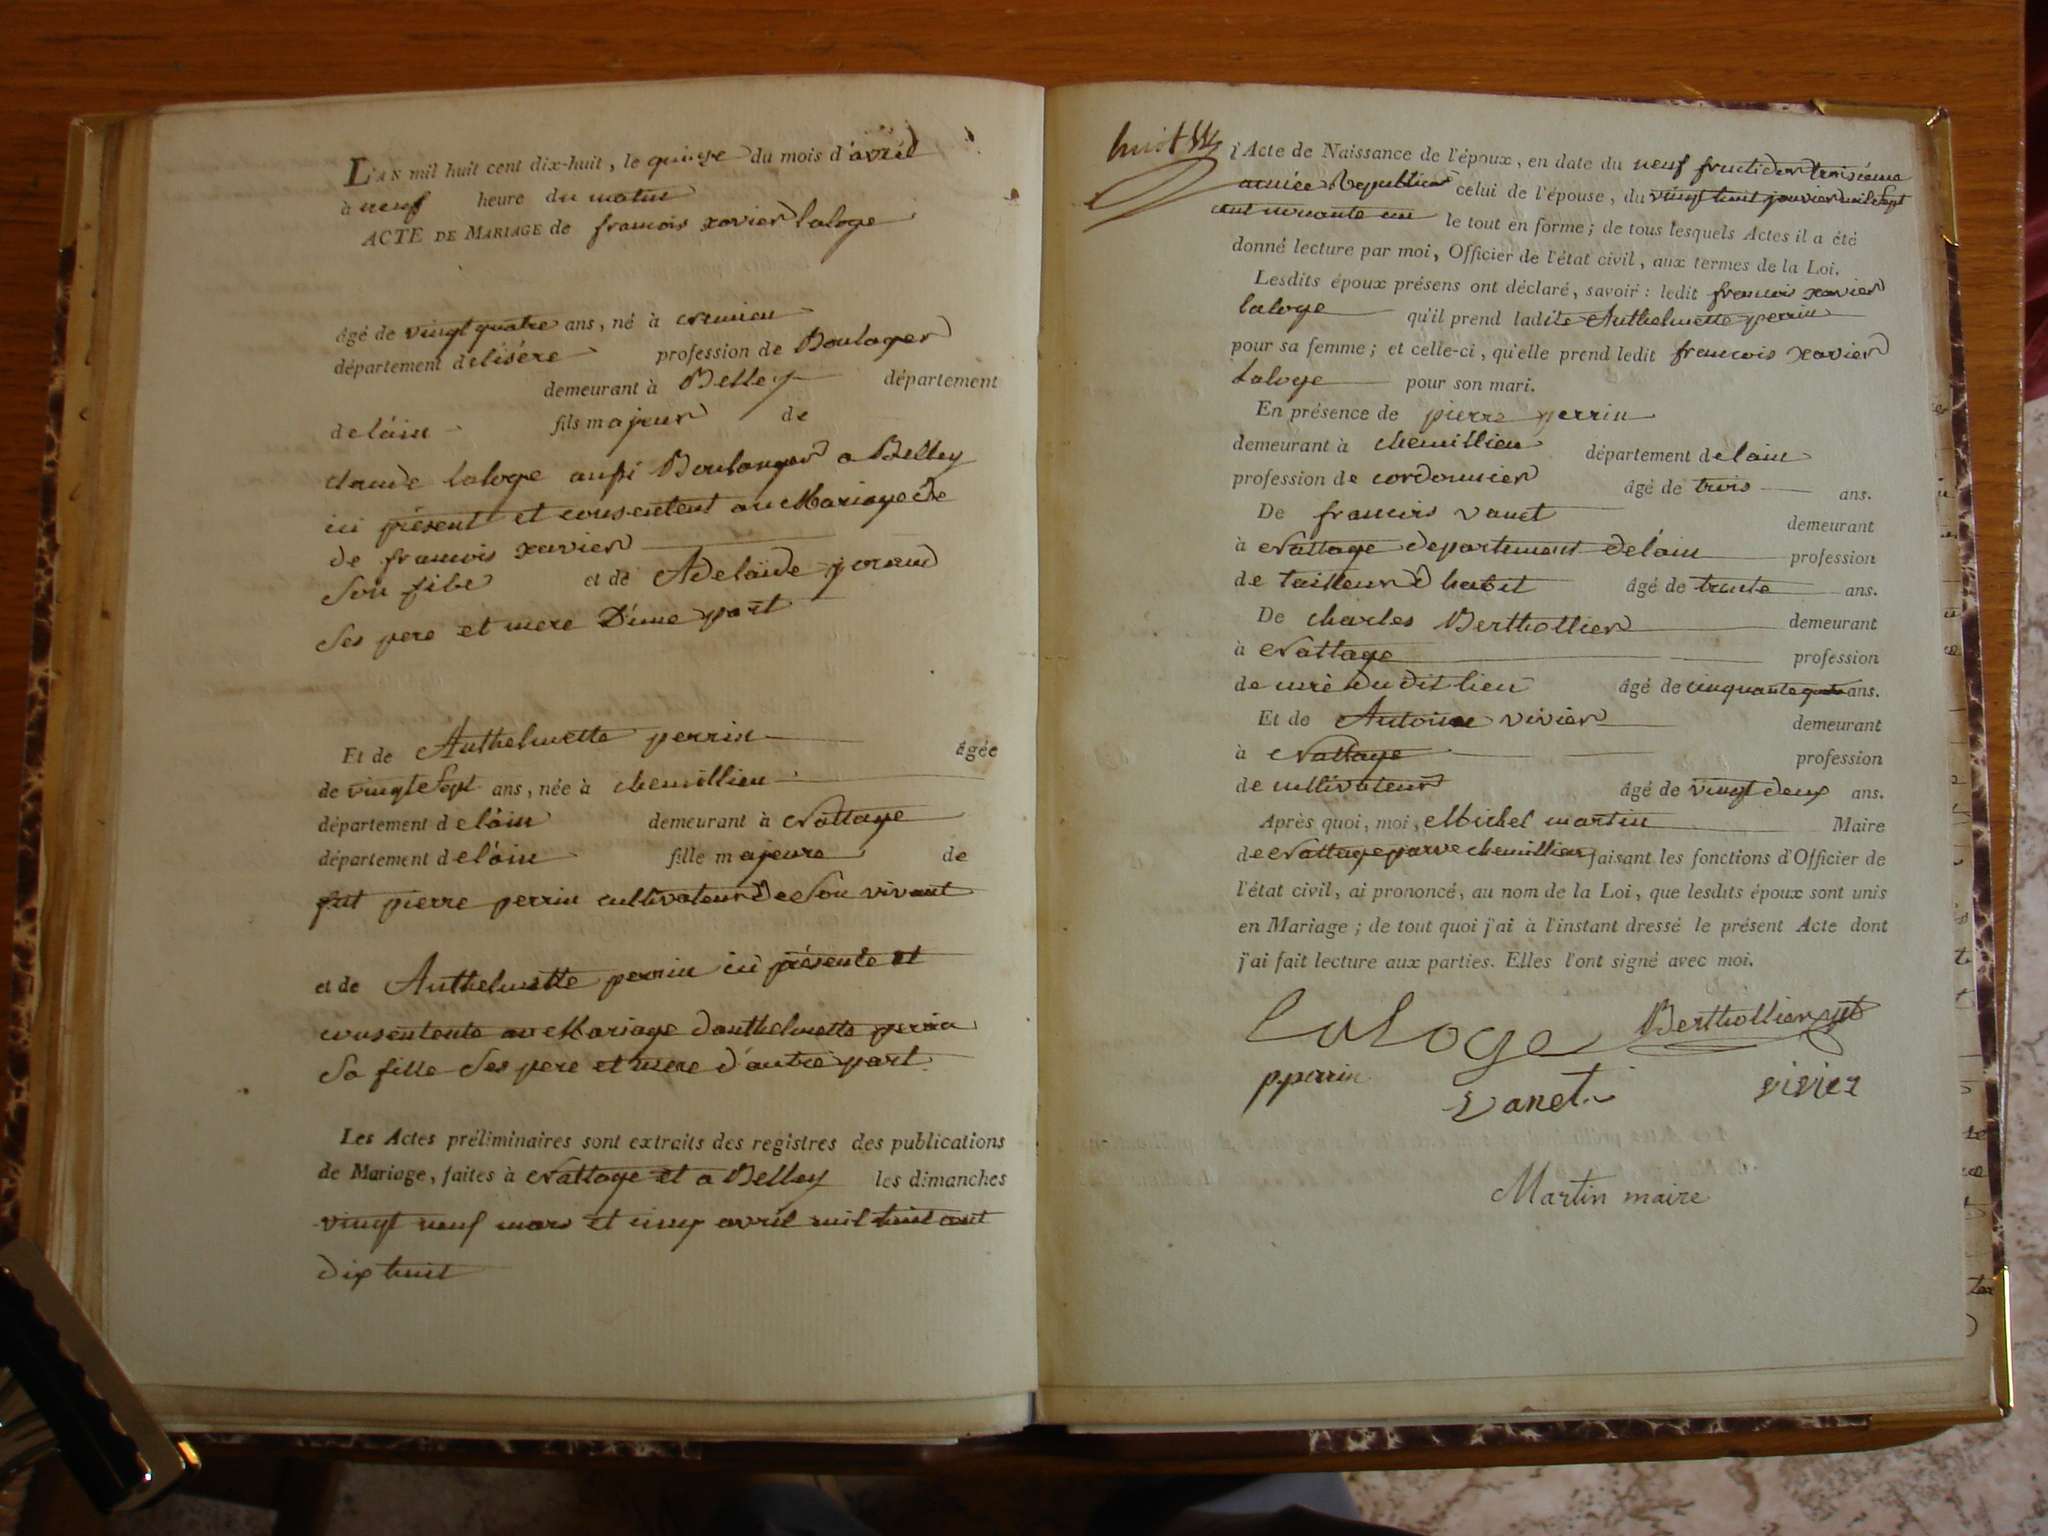 L'AN mil huit cent dix-huit, le quinze du mois d'avril
à neuf heure du matin
ACTE DE MARIAGE de francois xavier laloge
âgé de vingt quatre ans, né à cremieu
département de lisére profession de Boulager
demeurant à Belley département
de lain fils majeur de
claude laloge aussi Boulanger a Belley
ici présent et consentent au Mariage de
de francois xavier
Son fils et de Adelaide
Ses pere et mere D'une part
Et de Anthelmette perrin âgée
de vingt Sept ans, née à chemillieu
département de lain demeurant à Nattage
département de lain fille majeure de
fut pierre perrin cultivateur De Son vivant
et de Anthelmette perrin ici présente et
consentente au Mariage d'anthelmette perrin
Sa fille Ses pere et mere d'autre part
Les Actes préliminaires sont extraits des registres des publications
de Mariage, faites à Nattage et a Belley les dimanches
vingt neuf mars et cinq avril mil huit cent
dix huit
huit
l'Acte de Naissance de l'époux, en date du neuf fructidor troisiéme
année Republicai celui de l'épouse, du vingt huit janvier mil Sept
cent nonante un le tout en forme; de tous lesquels Actes il a été
donné lecture par moi, Officier de l'état civil, aux termes de la Loi.
Lesdits époux présens ont déclaré, savoir: ledit francois xavier
laloge qu'il prend ladite Anthelmette perrin
pour sa femme; et celle-ci, qu'elle prend ledit francois xavier
Laloge pour son mari.
En présence de pierre perrin
demeurant à chemillieu département de lain
profession de cordonnier âgé de trois ans.
De francois vanet demeurant
à Nattage departement de lain profession
de tailleur d'habit âgé de trente ans.
De charles Berthollier demeurant
à Nattage profession
de curé du dit lieu âgé de cinquante quatre ans.
Et de Antoine vivier demeurant
à Nattage profession
de cultivateur âgé de vingt deux ans.
Après quoi, moi, Michel martin Maire
de Nattage parve chemillieu faisant les fonctions d'Officier de
l'état civil, ai prononcé, au nom de la Loi, que lesdits époux sont unis
en Mariage; de tout quoi j'ai à l'instant dressé le présent Acte dont
j'ai fait lecture aux parties. Elles l'ont signé avec moi.
laloge Berthollier
p perrin vanet vivier
Martin maire